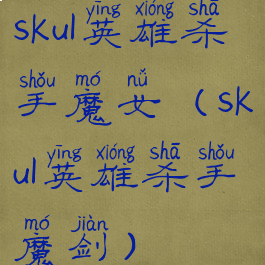 yīng xióng shā
skul英雄杀
shǒu mó nǚ
手魔女（sk
yīng xióng shā shǒu
ul英雄杀手
mó jiàn
魔剑）